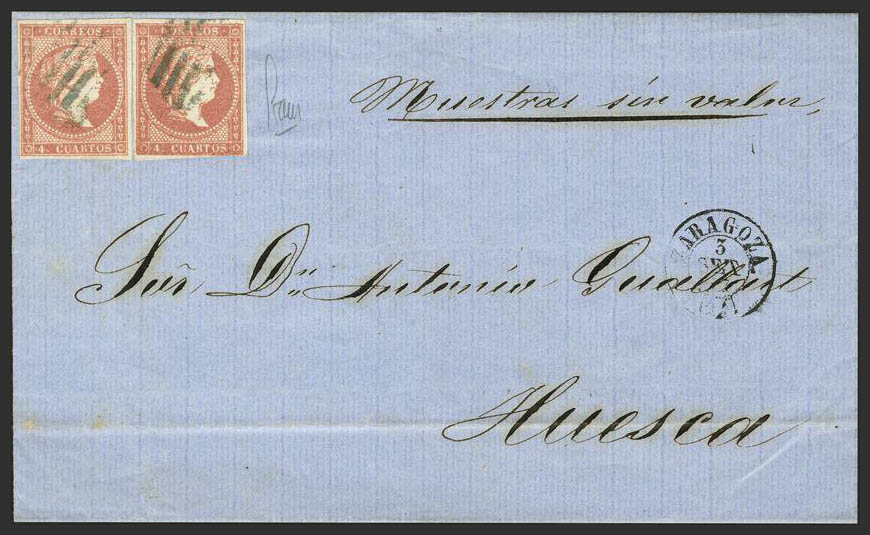 CORREOS CORREOS
4. CUARTOS 4. CUARTOS
Muestras sin valor,
ZARAGOZA.
3
SET
Sor Dn Antonio
Huesca